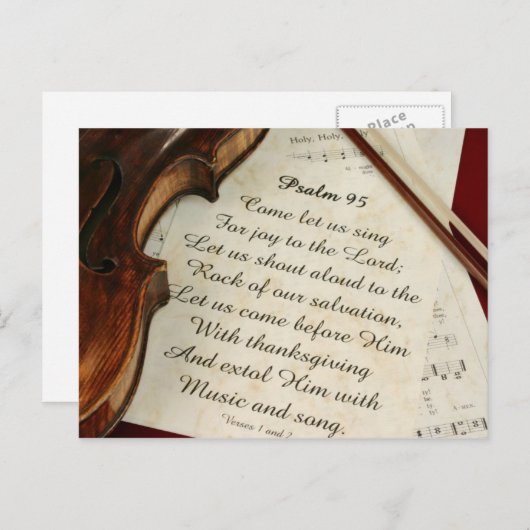 Place
Holy, Holy, Holy
Psalm 95
Come let us sing
For joy to the Lord;
Let us shout aloud to the
Rock of our salvation,
Let us come before Him
With thanksgiving
And extol Him with
Music and song.
Verses 1 and 2
A-MEN.